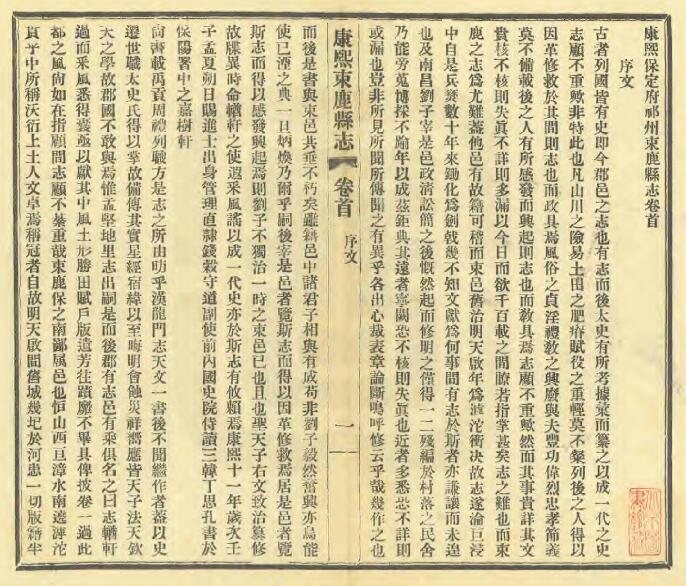 康熙保定府祁州束鹿縣志卷首
序文
古者列國皆有史即今郡邑之志也有志而後太史有所考據彙而纂之以成一代之史
志顧不重歟非特此也凡山川之險易土田之肥瘠賦役之重輕莫不粲列後之人得以
因革修救於其間則志也而政具焉風俗之貞淫禮敎之興廢與夫豐功偉烈忠孝節義
莫不備載後之人有所感發而興起則志也而敎具焉志顧不重歟然而其事貴詳其文
貴核不核則失眞不詳則多漏以今日而欲千百載之間瞭若指掌甚矣志之難也而束
鹿之志爲尤難蓋他邑有故籍可稽而束邑舊治明天啟年爲滹沱衝决故志遂淪巨浸
中自是兵燹數十年來鋤化爲劍戟幾不知文獻爲何事間有志於斯者亦謙讓而未遑
也及南昌劉子宰是邑政淸訟簡之後慨然起而修明之僅得一二殘編於村落之民舍
乃能旁蒐博採不踰年以成茲鉅典其遠者寧闕恐不核則失眞也近者多悉恐不詳則
或漏也豈非所見所聞所傳聞之有異乎各出心裁表章論斷嗚呼修云乎哉幾作之也
康熙束鹿縣志
卷首 序文
一
而後是書與束邑共垂不朽矣雖籍邑中諸君子相與有成苟非劉子毅然奮興亦烏能
使已湮之典一旦炳煥乃爾乎嗣後宰是邑者覽斯志而得以因革修救焉居是邑者覽
斯志而得以感發興起焉則劉子不獨治一時之束邑已也且也聖天子右文致治纂修
故牒異時命輶軒之使遐采風謠以成一代史亦於斯志有攸賴焉康熙十一年歲次壬
子孟夏朔日賜進士出身管理直隷錢穀守道副使前內國史院侍讀三韓丁思孔書於
保陽署中之嘉樹軒
尙書載禹貢周禮列職方是志之所由昉乎漢龍門志天文一書後不聞繼作者蓋以史
遷世職太史氏得以掌故備傳其實星經宿緯以至晦明會蝕災祥禨應皆天子法天欽
天之學故郡國不敢與焉惟孟堅地里志出嗣是而後郡有志邑有乘俱名之曰志輶軒
過而釆風悉得囊括以獻其中風土形勝田賦戶版遺芳往蹟靡不畢具俾披卷一過此
都之風尙如在指顧間志顧不綦重哉束鹿保之南鄙屬邑也恒山西亘漳水南遶滹沱
貫乎中所稱沃衍上土人文卓焉稱冠者自故明天啟間舊城幾圮於河患一切版籍半